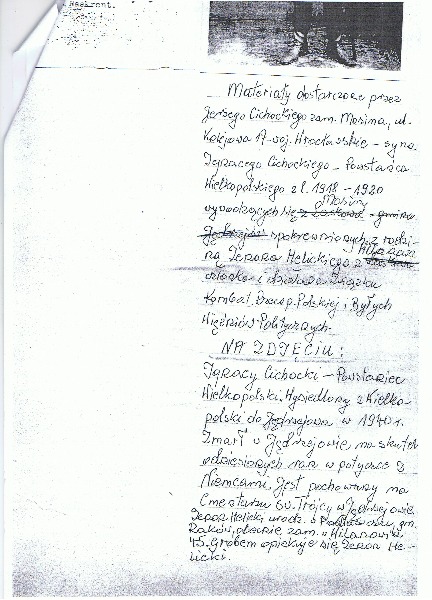 Naskront.
Materiały dostarczone przez
Jerzego Cichockiego zam. Mosina, ul.
Kolejowa 17 woj. Wrocławskie - syna
Ignacego Cichockiego - Powstańca
Wielkopolskiego z l. 1918 - 1920
Mosiny
wywodzących się z gmina
spokrewnionych z rodzi-
ną Zenona Helickiego z
członka i działacza Związku
Kombat. Rzeczp. Polskiej i Byłych
Więźniów Politycznych.
NA ZDJĘCIU:
Ignacy Cichocki - Powstaniec
Wielkopolski, Wysiedlony z Wielko-
polski do Jędrzejowa w 1940 r.
Zmarł w Jędrzejowie, na skutek
odniesionych ran w potyczce z
Niemcami, Jest pochowany na
Cmentarzu Św. Trójcy w Jędrzejowie
Zenon Helicki urodz. gm.
Raków, obecnie zam. w Milanowie
45. Grobem opiekuje się Zenon He-
licki.